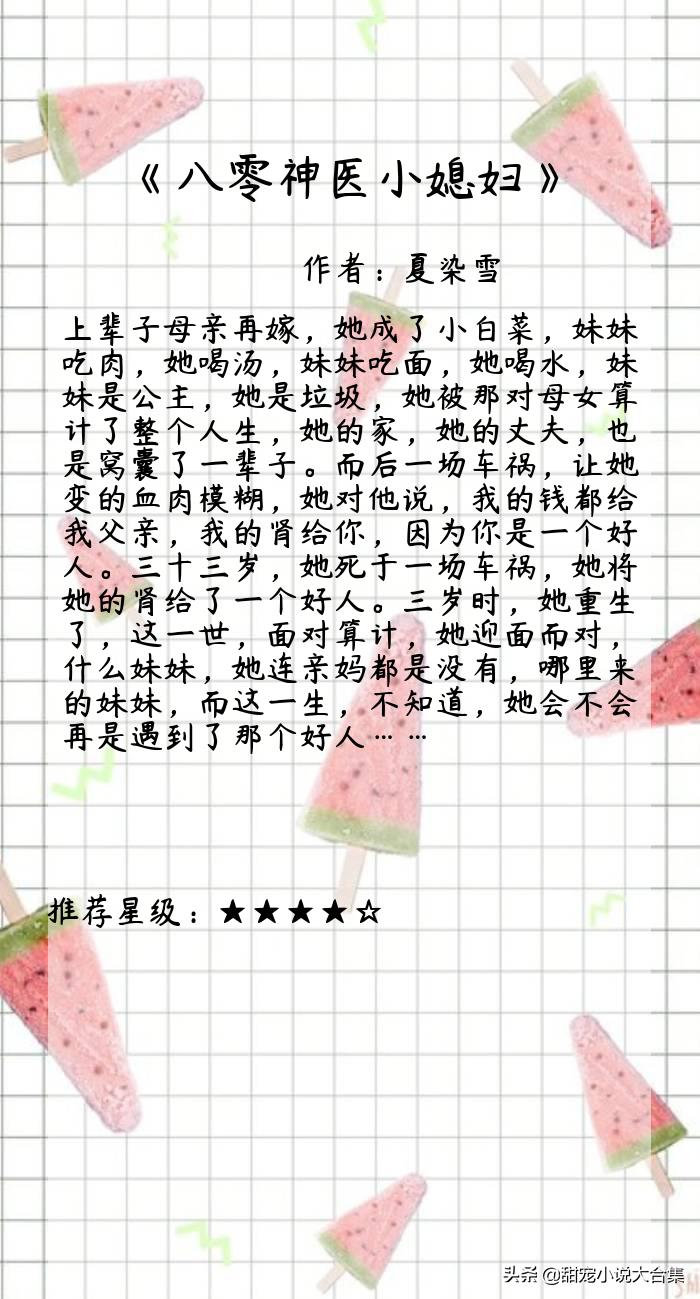 《八零神医小媳妇》
作者：夏染雪
上辈子母亲再嫁，她成了小白菜，妹妹
吃肉，她喝汤，妹妹吃面，她喝水，妹
妹是公主，她是垃圾，她被那对母女算
计了整个人生，她的家，她的丈夫，也
是窝囊了一辈子。而后一场车祸，让她
变的血肉模糊，她对他说，我的钱都给
我父亲，我的肾给你，因为你是一个好
人。三十三岁，她死于一场车祸，她将
她的肾给了一个好人。三岁时，她重生
了，这一世，面对算计，她迎面而对，
什么妹妹，她连亲妈都是没有，哪里来
的妹妹，而这一生，不知道，她会不会
再是遇到了那个好人……
推荐星级：★★★★☆
头条 @甜宠小说大合集